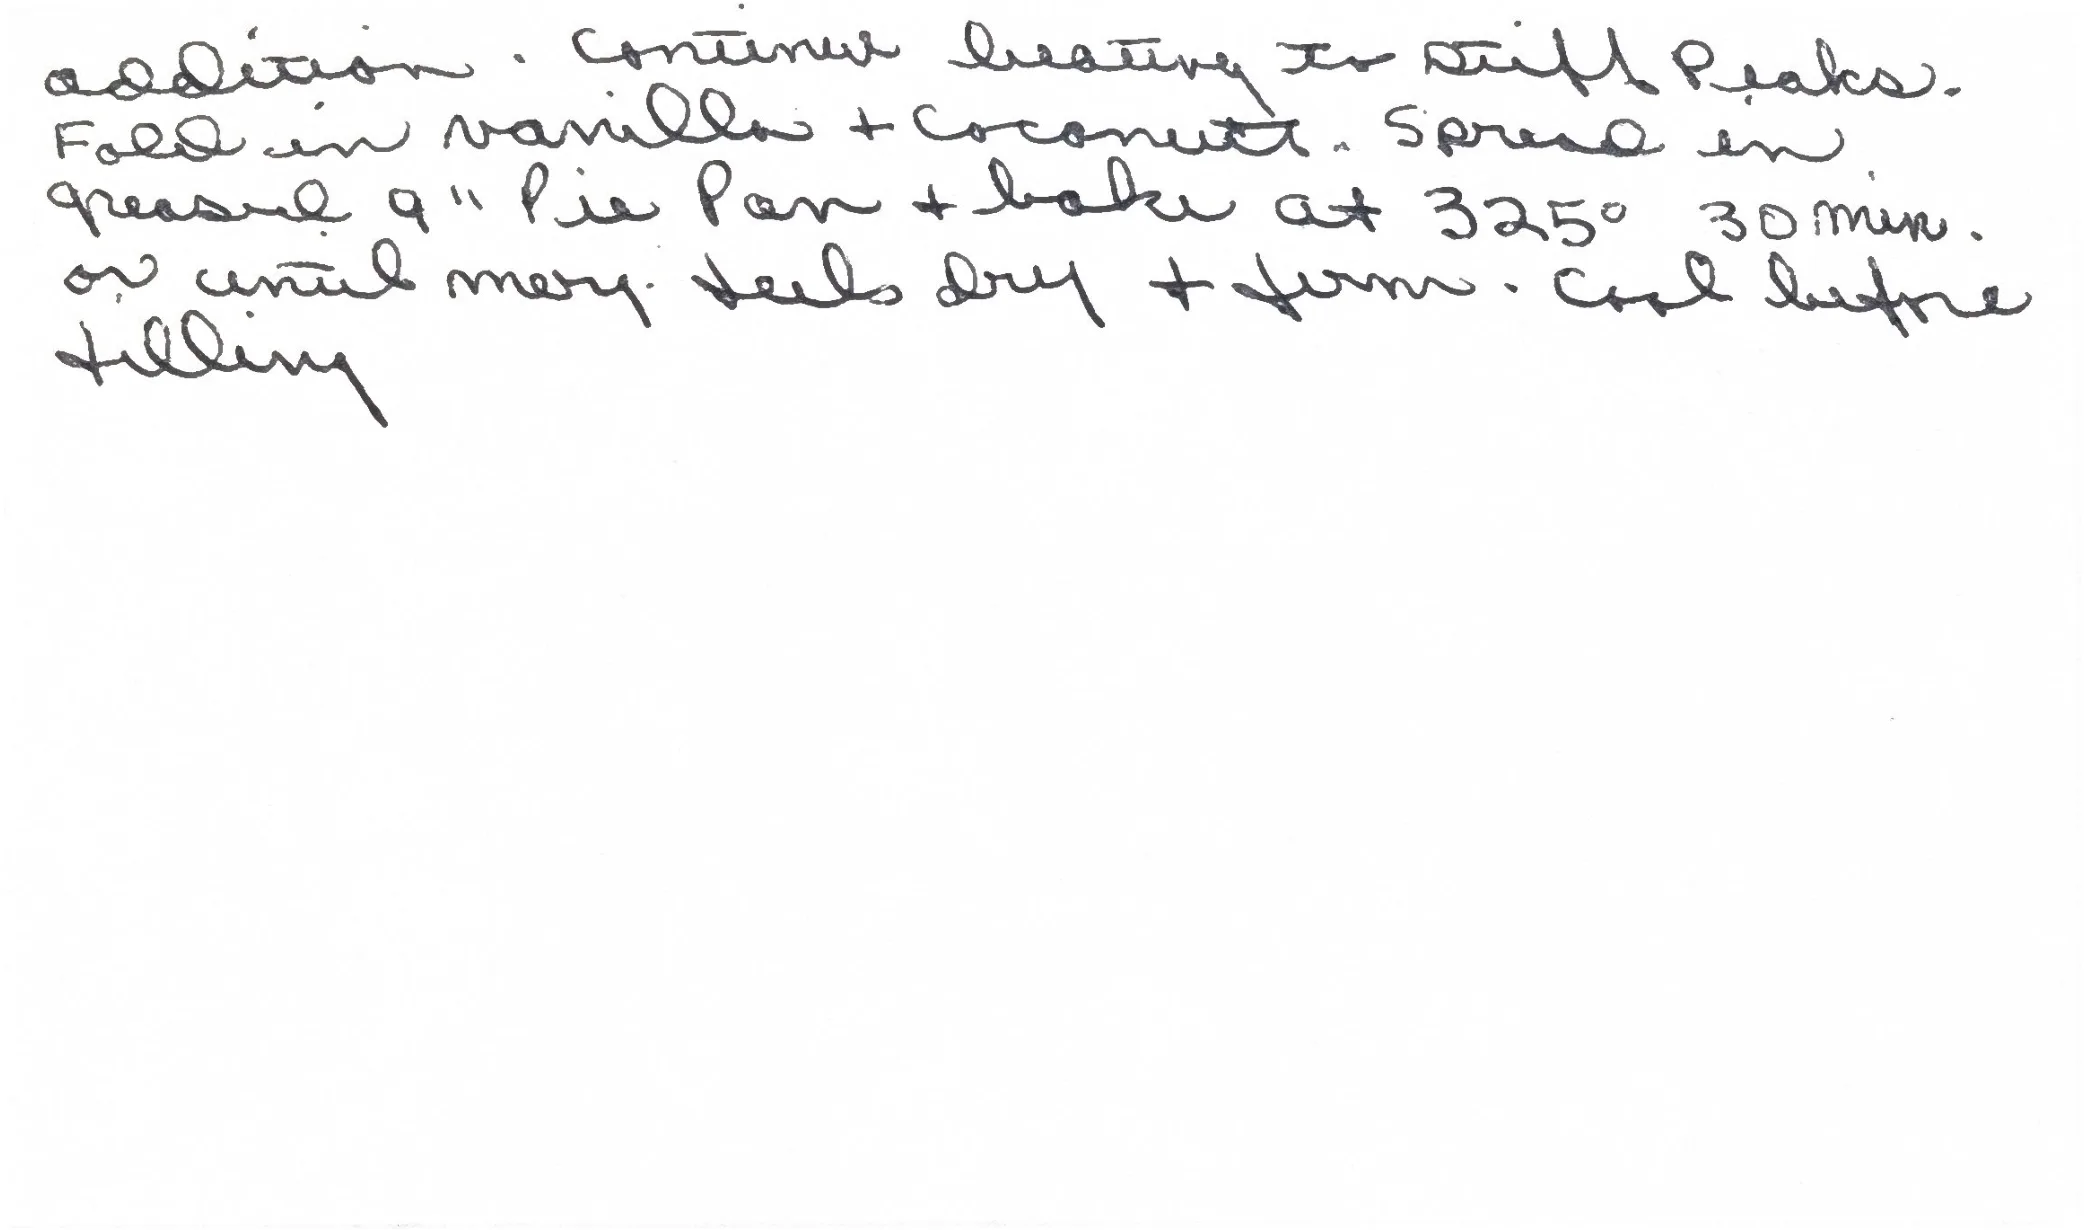 addition. Continue beating to stiff Peaks.
Fold in vanilla + Coconutt. Spread in
greased 9" Pie Pan + bake at 325° 30 min.
or until mery. feels dry + firm. Cool before
filling